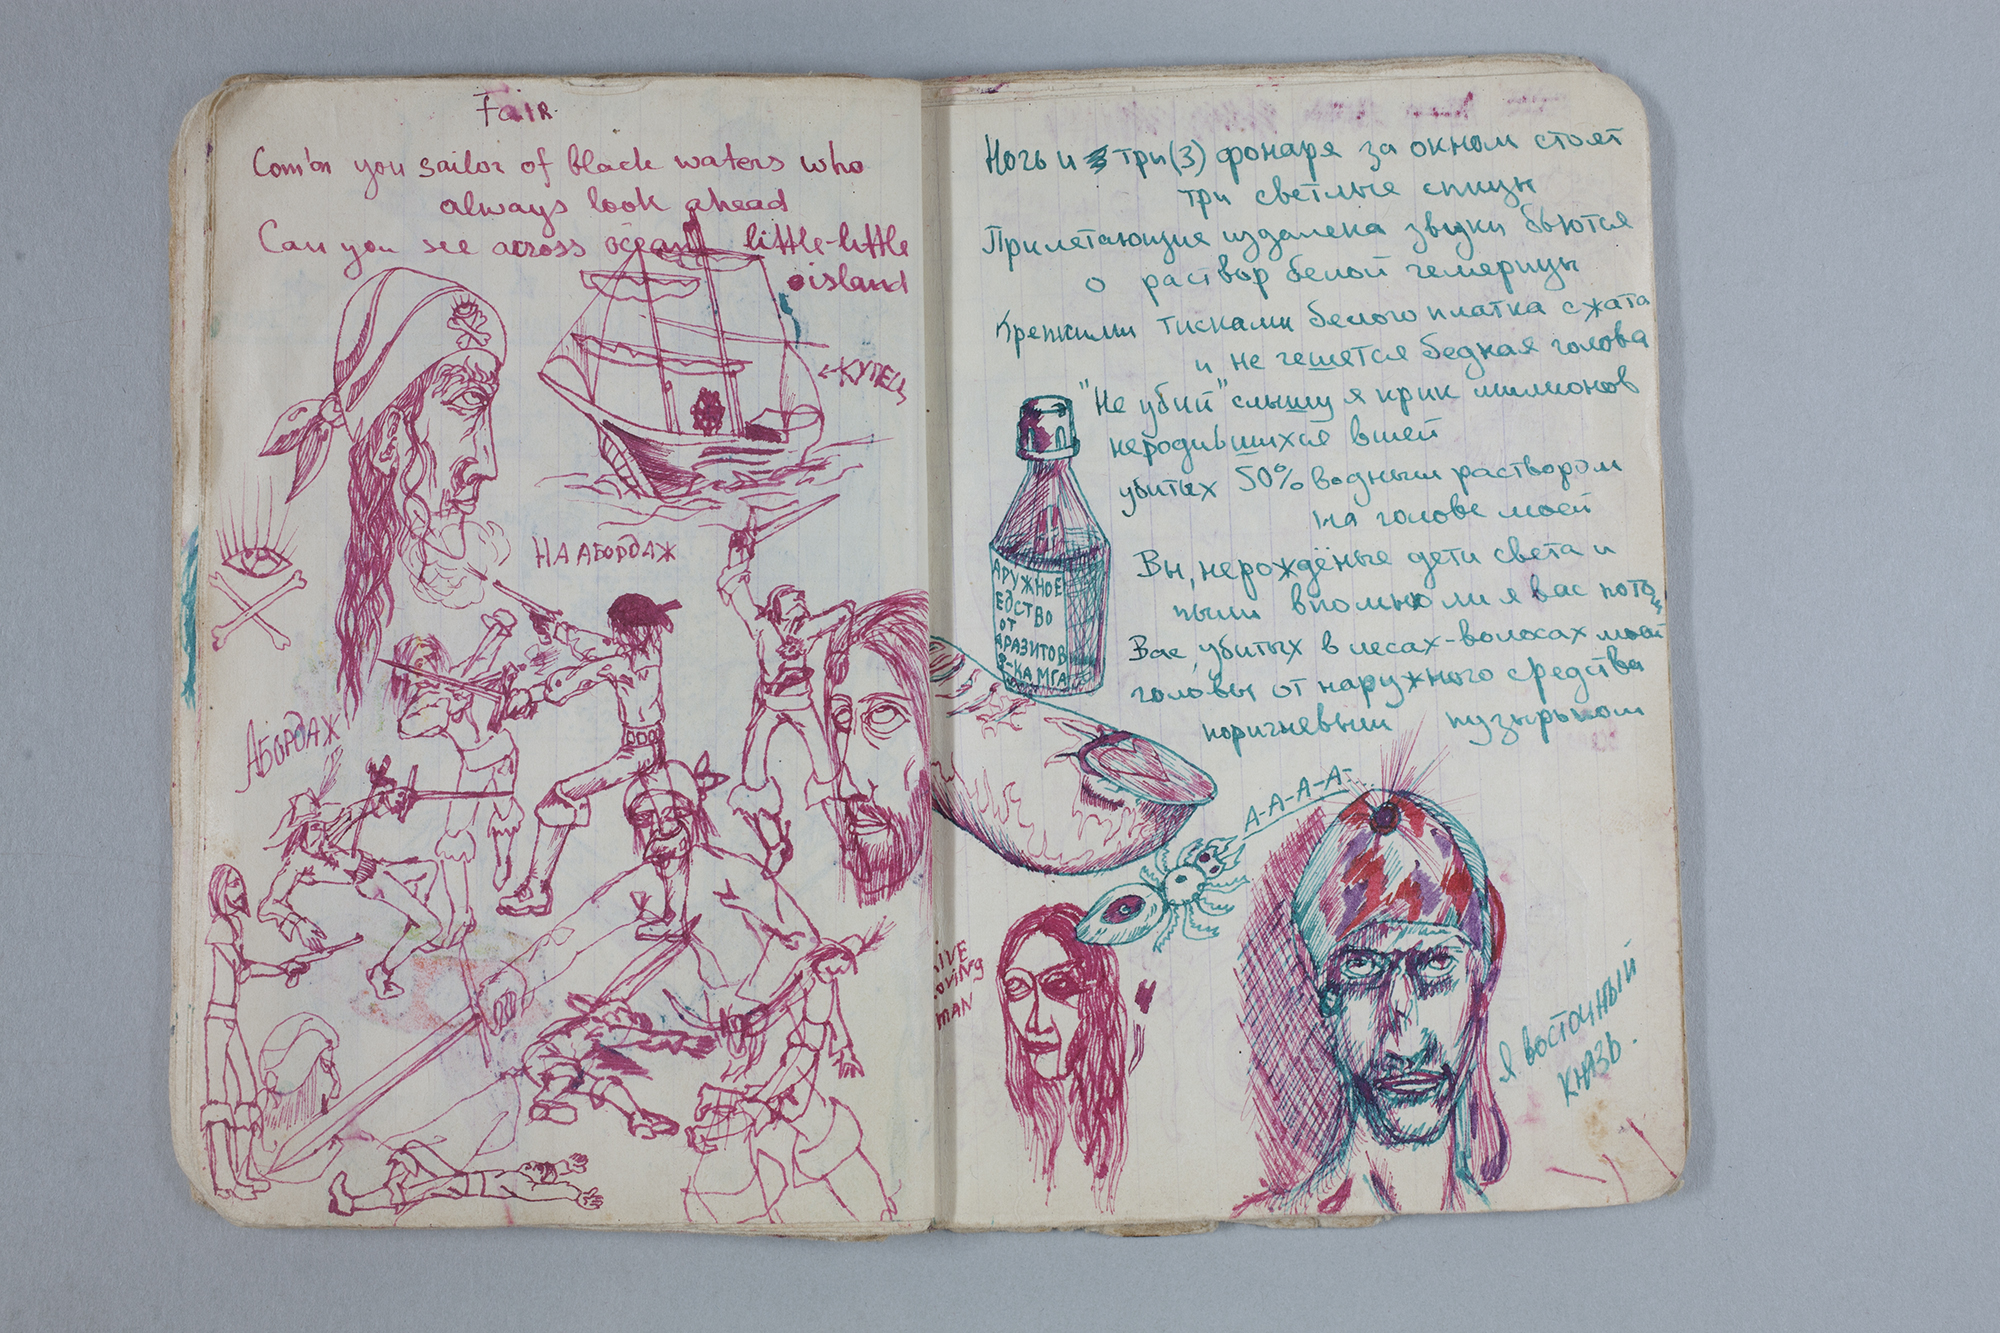 Fair.
Com'on you sailor of black waters who
always look ahead
Can you see across ocean little-little
island
←КУПЕЦ
НА АБОРДАЖ
АБОРДАЖ
Ночь и три(3) фонаря за окном стоят
три светлые спицы
Прилетающие издалека звуки бьются
о раствор белой чемерицы
Крепкими тисками белого платка сжата
и не чешется бедная голова
"Не убий" слышу я крик милионов
неродившихся вшей
убитых 50% водным раствором
на голове моей
Вы, нерождёные дети света и
пыли вспомню ли я вас потом
Вас, убитых в лесах-волосах моей
головы от наружного средства
коричневым пузырьком
АРУЖНОЕ
ЕДСТВО
ОТ
АРАЗИТОВ
Я-КА МГА
А-А-А-А-
IVE
OVING
MAN
Я ВОСТОЧНЫЙ
КНЯЗЬ.